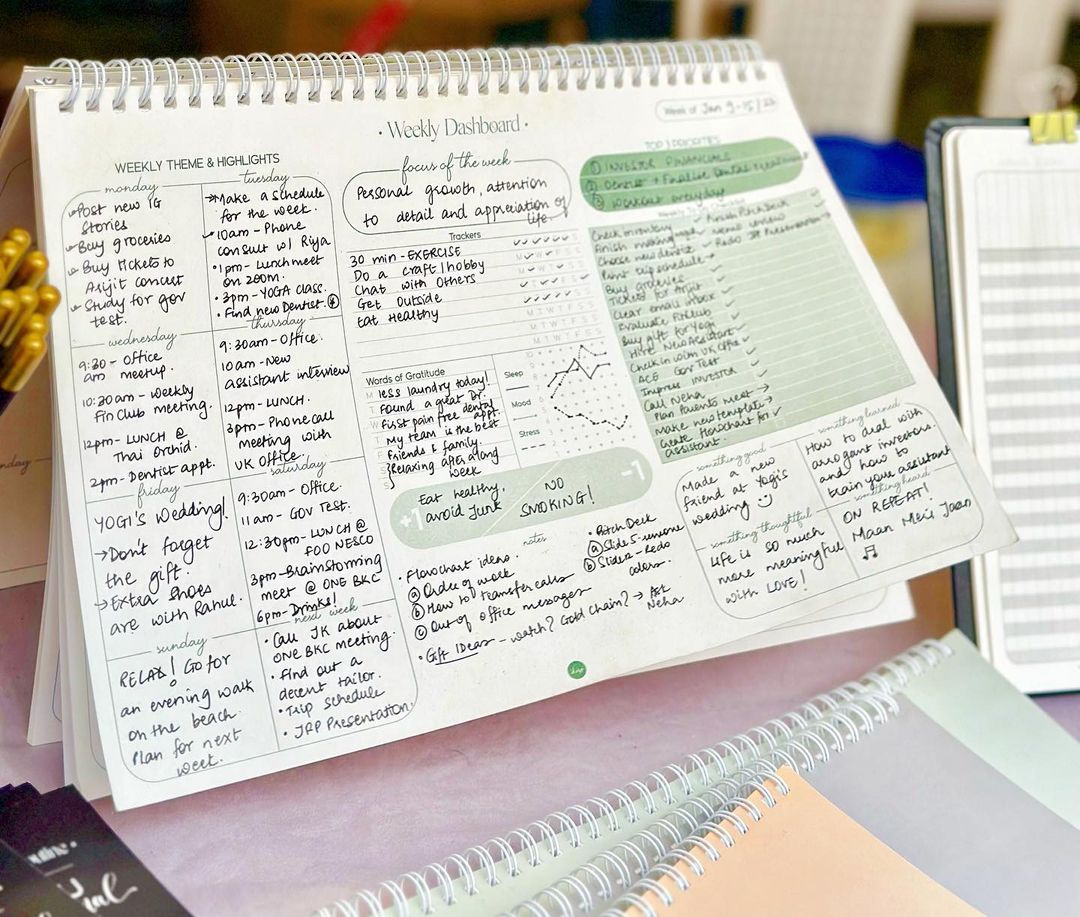 Weekly Dashboard
Week of Jan 9-15/
WEEKLY THEME & HIGHLIGHTS
monday
Post new IG
Stories
Buy groceries
Buy tickets to
Arijit concert
Study for gov
test.
tuesday
Make a schedule
for the week.
10am - Phone
consult w/ Riya
1pm - Lunch meet
on zoom.
3pm - YOGA class.
Find new Dentist.
wednesday
9:30 - Office
am meetup.
10:30am - weekly
Fin Club meeting.
12pm - LUNCH @
Thai Orchid.
2pm - Dentist appt.
thursday
9:30am - Office.
10am - New
assistant interview
12pm - LUNCH.
3pm - Phone call
meeting with
UK Office.
friday
YOGI's Wedding!
→Don't forget
the gift.
→Extra Shoes
are with Rahul.
saturday
9:30am - Office.
11am - GOV TEST.
12:30pm - LUNCH @
FOO NESCO
3pm - Brainstorming
meet @ ONE BKC
6pm - Drinks!
sunday
RELAX! Go for
an evening walk
on the beach.
Plan for next
week.
next week
• Call JK about
ONE BKC meeting.
• Find out a
decent tailor.
• Trip Schedule
• JAP Presentation.
focus of the week
Personal growth, attention
to detail and appreciation of
life.
Trackers
30 min - EXERCISE
Do a craft/hobby
Chat with Others
Get Outside
Eat Healthy
M T W T F S S
Words of Gratitude
less laundry today!
Found a great Dr.
First pain free dental
appt.
My team is the best
Friends & family.
Relaxing after a long
week
Sleep
Mood
Stress
+1
Eat healthy,
avoid Junk
-1
NO
SMOKING!
notes
• Flowchart ideas.
ⓐ Order of work
ⓑ How to transfer calls
ⓒ Out of office messages
• Gift Ideas - watch? Gold Chain? → Ask
Neha
• Pitch Deck
ⓐ Slide 5 -
ⓑ Slide 2 - redo
colors.
TOP 3 PRIORITIES
① INVESTOR FINANCIALS
② Dentist + Finalise dental treatment
③ Workout everyday
Check inventory
Finish
Choose new dentist
Print trip schedule
Buy groceries
Tickets for Arijit
Clear email inbox
Evaluate
Buy gift for Yogi
Hire New Assistant
Check in with UK Office
ACE Gov Test
Impress INVESTOR
Call Neha
Plan Parents meet
Make new template
Create Flowchart for
assistant.
Finish Pitch Deck
Redo
something good
Made a new
friend at Yogi's
wedding
something learned
How to deal with
arrogant investors.
and how to
train your assistant
something thoughtful
Life is so much
more meaningful
with LOVE!
something heard
ON REPEAT!
Maan Meri Jaan